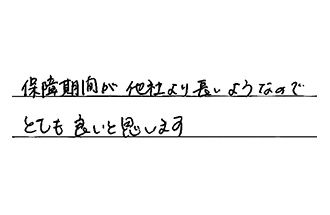 保障期間が他社より長いようなので
とても良いと思います